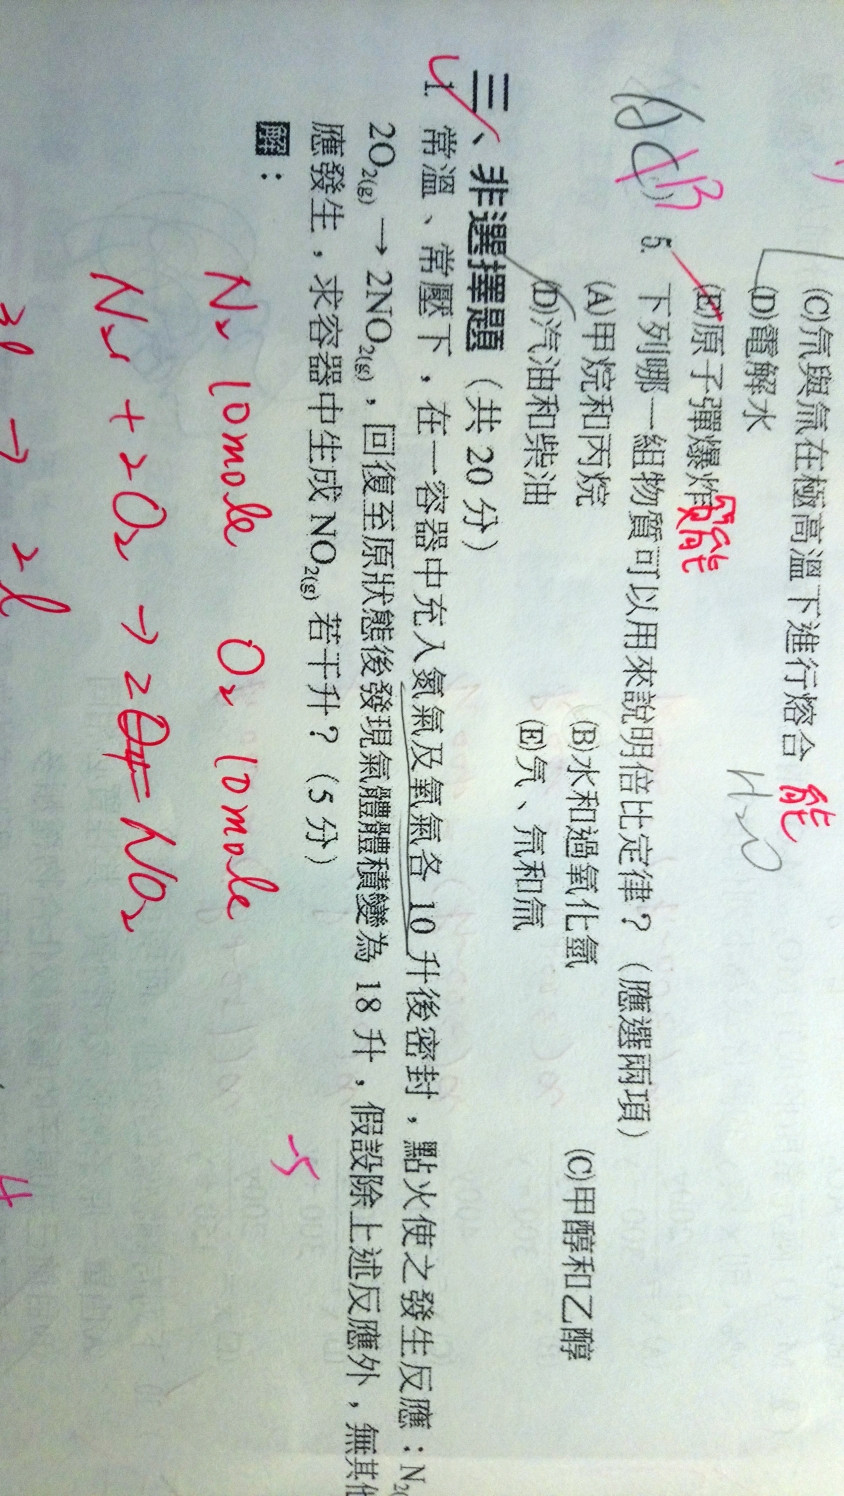 (C)氘與氚在極高溫下進行熔合 能
(D)電解水 H2O
(E)原子彈爆炸 質能
(AC) AB 5. 下列哪一組物質可以用來說明倍比定律？（應選兩項）
(A)甲烷和丙烷 (B)水和過氧化氫 (C)甲醇和乙醇
(D)汽油和柴油 (E)氕、氘和氚
三、非選擇題（共 20 分）
1. 常溫、常壓下，在一容器中充入氮氣及氧氣各 10 升後密封，點火使之發生反應：N2(
2O2(g) → 2NO2(g)，回復至原狀態後發現氣體體積變為 18 升，假設除上述反應外，無其他
應發生，求容器中生成 NO2(g) 若干升？（5 分）
解：
-5
N2 10mole O2 10mole
N2 + 2O2 → 2 NO2
3l → 2l
4